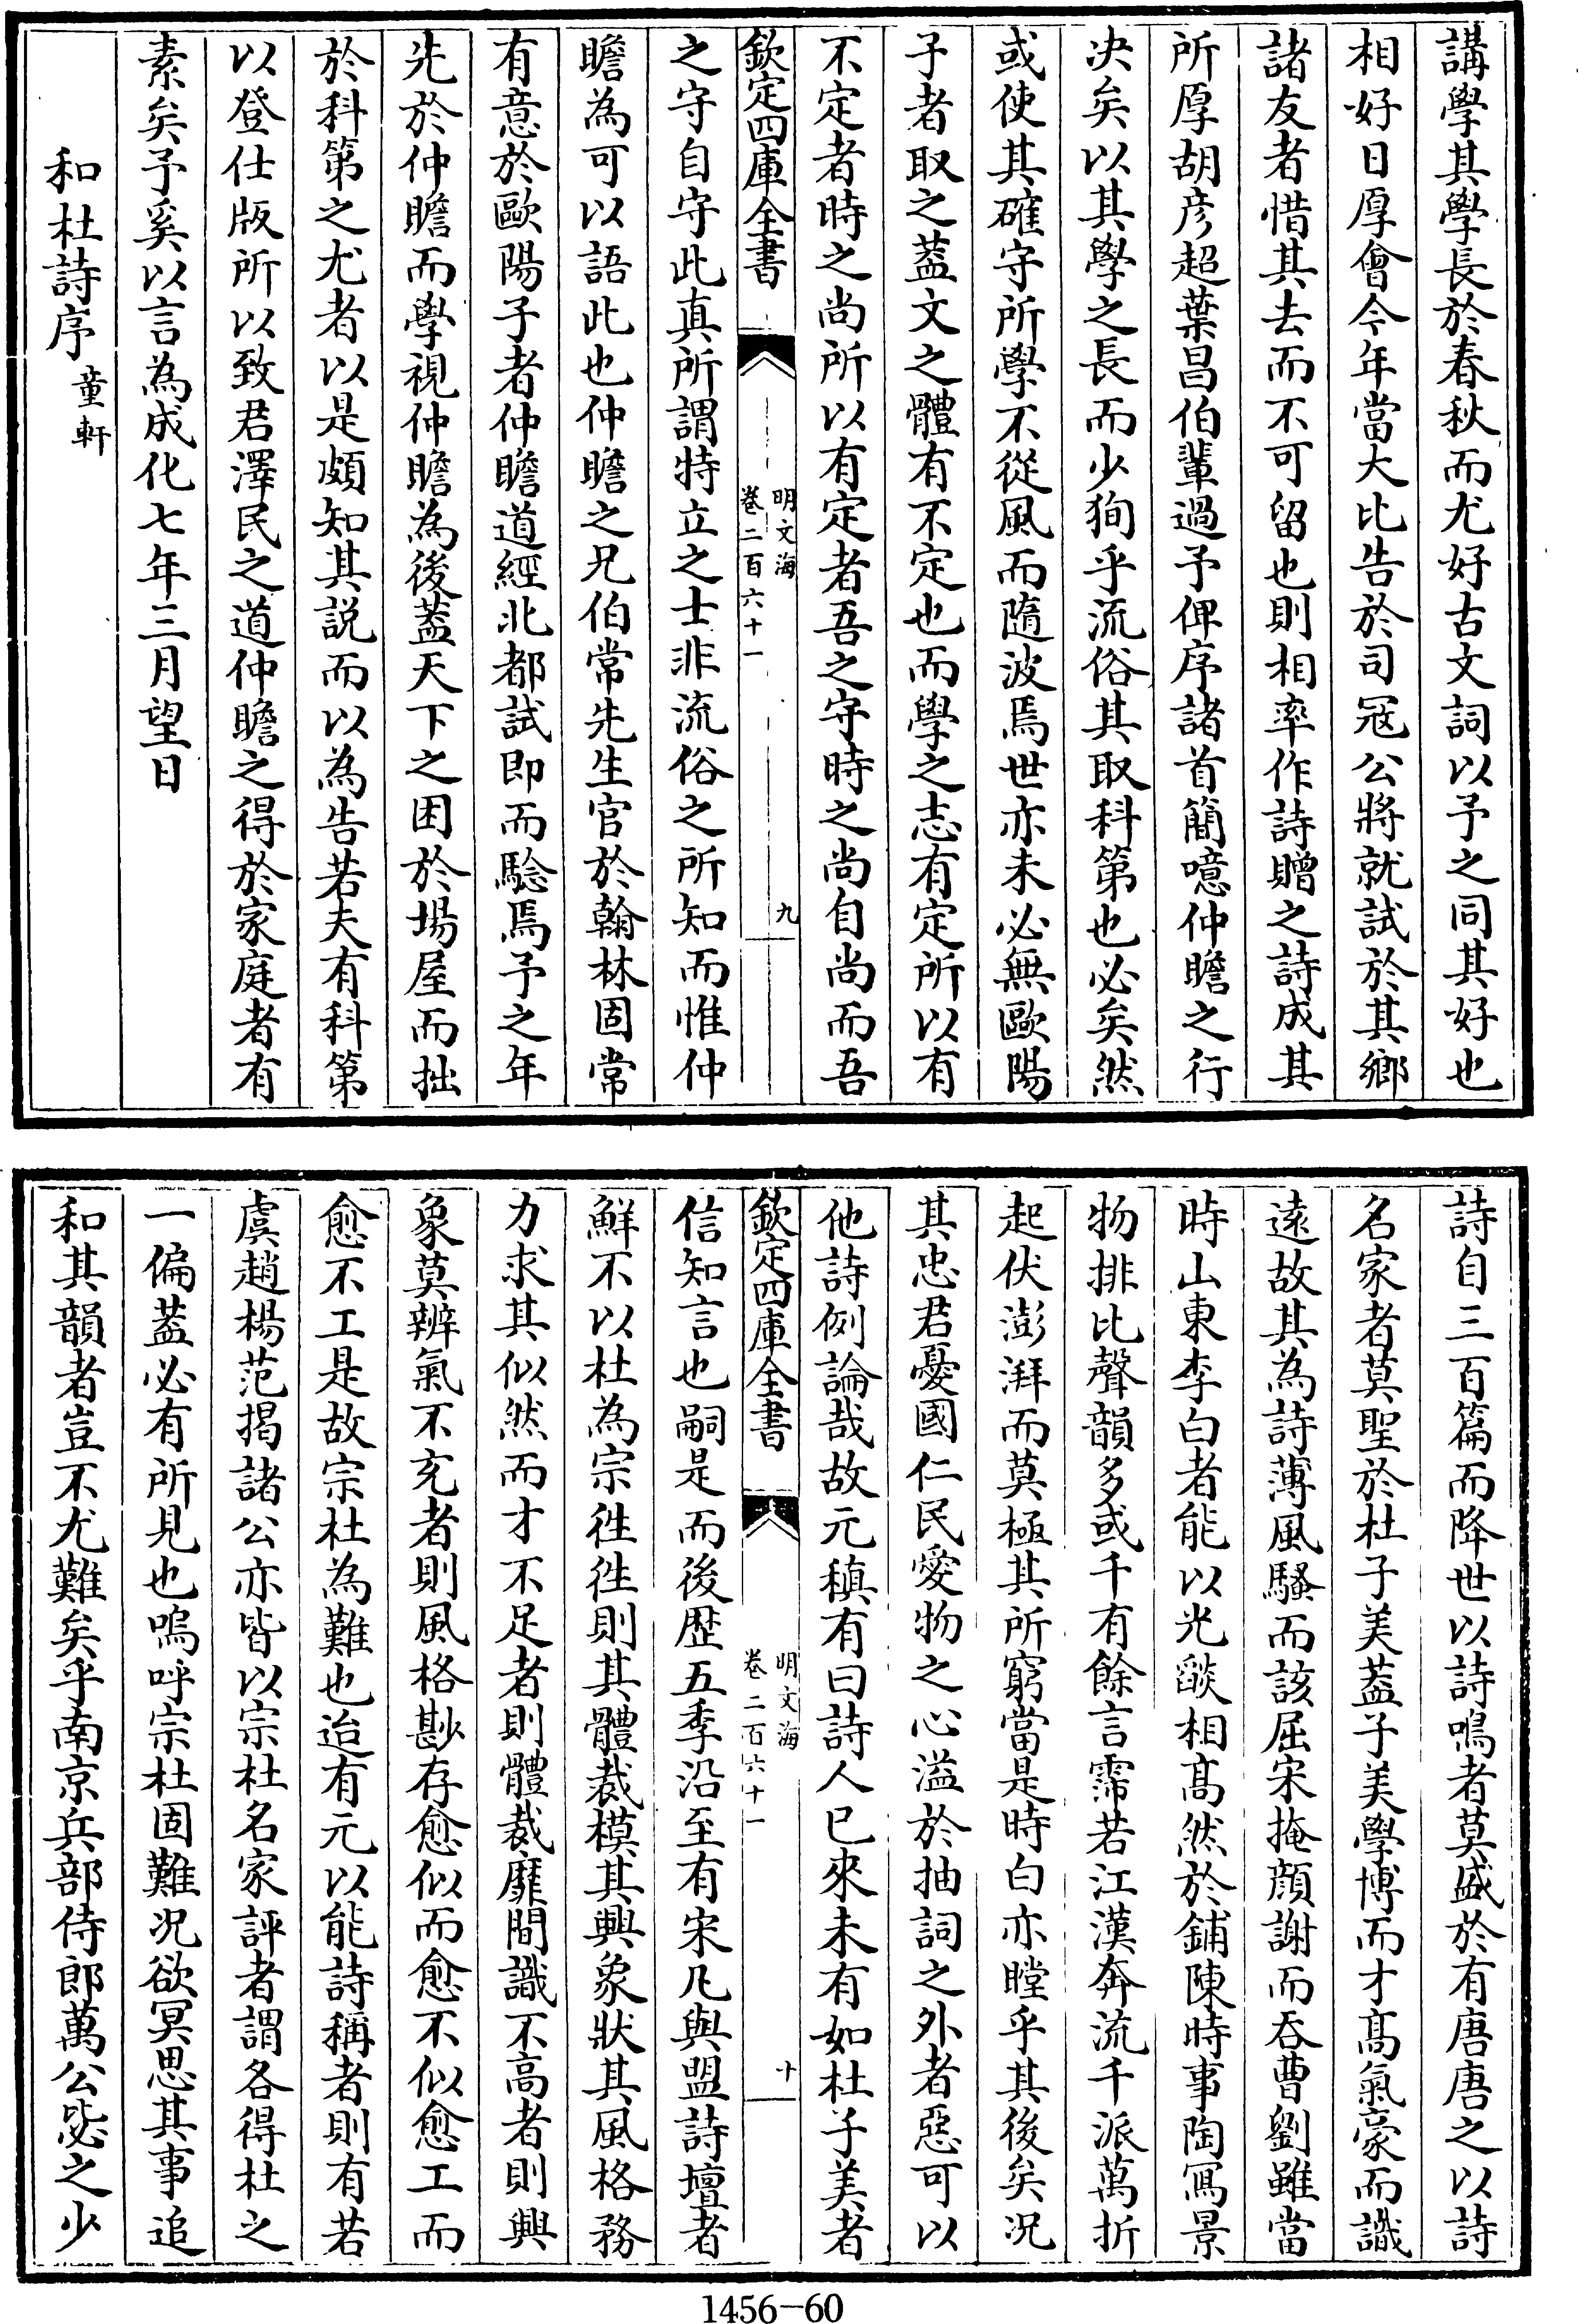 講學其學長於春秋而尤好古文詞以予之同其好也
相好日厚會今年當大比告於司冦公將就試於其鄉
諸友者惜其去而不可留也則相率作詩贈之詩成其
所厚胡彦超葉昌伯輩過予俾序諸首簡噫仲瞻之行
决矣以其學之長而少狥乎流俗其取科第也必矣然
或使其確守所學不從風而隨波焉世亦未必無歐陽
子者取之葢文之體有不定也而學之志有定所以有
不定者時之尚所以有定者吾之守時之尚自尚而吾
欽定四庫全書
明文海
卷二百六十一
九
之守自守此真所謂特立之士非流俗之所知而惟仲
瞻為可以語此也仲瞻之兄伯常先生官於翰林固常
有意於歐陽子者仲瞻道經北都試即而騐焉予之年
先於仲瞻而學視仲瞻為後葢天下之困於場屋而拙
於科第之尤者以是頗知其説而以為告若夫有科第
以登仕版所以致君澤民之道仲瞻之得於家庭者有
素矣予奚以言為成化七年三月望日
和杜詩序 童軒
詩自三百篇而降世以詩鳴者莫盛於有唐唐之以詩
名家者莫聖於杜子美葢子美學博而才髙氣豪而識
遠故其為詩薄風騷而該屈宋掩顔謝而吞曹劉雖當
時山東李白者能以光燄相髙然於鋪陳時事陶寫景
物排比聲韻多或千有餘言霈若江漢奔流千派萬折
起伏澎湃而莫極其所窮當是時白亦瞠乎其後矣况
其忠君憂國仁民愛物之心溢於抽詞之外者惡可以
他詩例論哉故元稹有曰詩人已來未有如杜子美者
欽定四庫全書
明文海
卷二百六十一
十
信知言也嗣是而後歴五季沿至有宋凡與盟詩壇者
鮮不以杜為宗徃徃則其體裁模其興象狀其風格務
力求其似然而才不足者則體裁靡間識不高者則興
象莫辨氣不充者則風格尠存愈似而愈不似愈工而
愈不工是故宗杜為難也迨有元以能詩稱者則有若
虞趙楊范揭諸公亦皆以宗杜名家評者謂各得杜之
一偏葢必有所見也嗚呼宗杜固難况欲冥思其事追
和其韻者豈不尤難矣乎南京兵部侍郎萬公毖之少
1456-60